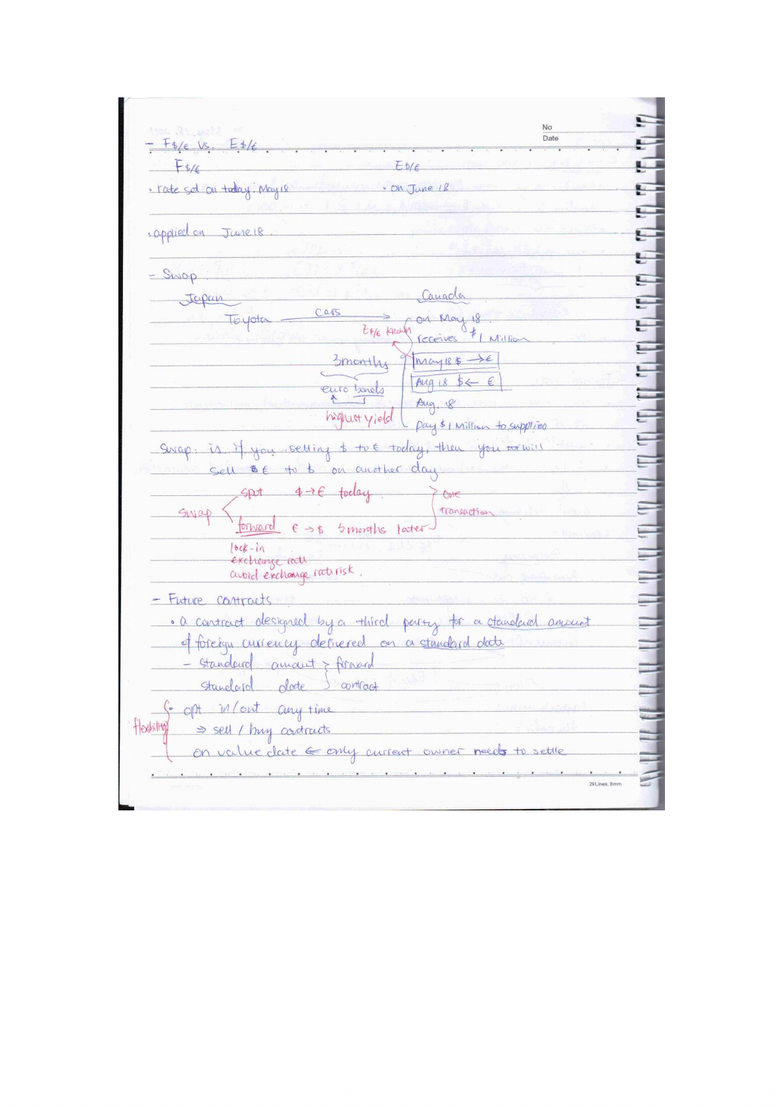 No
Date
- F$/€ Vs. E$/€
F$/€ E$/€
• rate set on today: May 18 • on June 18
• applied on June 18.
- Swap:
Japan Canada
Toyota cars on May 18
E$/€ known receives $1 Million
3 months May 18 $ → €
euro bonds Aug 18 $ ← €
Aug. 18
highest yield pay $1 Million to supplies
Swap: is if you selling $ to € today, then you will
sell € to $ on another day
spot $ → € today one
swap transaction
forward € → $ 3 months later
lock-in
exchange rate
avoid exchange rate risk.
- Future contracts
• a contract designed by a third party for a standard amount
of foreign currency delivered on a standard date
- standard amount > forward
standard date contract
• opt in/out any time
flexibility ⇒ sell / buy contracts
on value date ← only current owner needs to settle
29Lines, 8mm